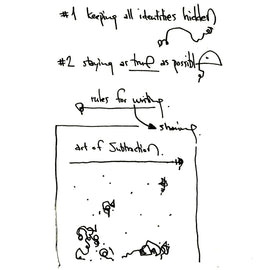 #1 keeping all identities hidden
#2 staying as true as possible
rules for writing
sharing
art of Subtraction.